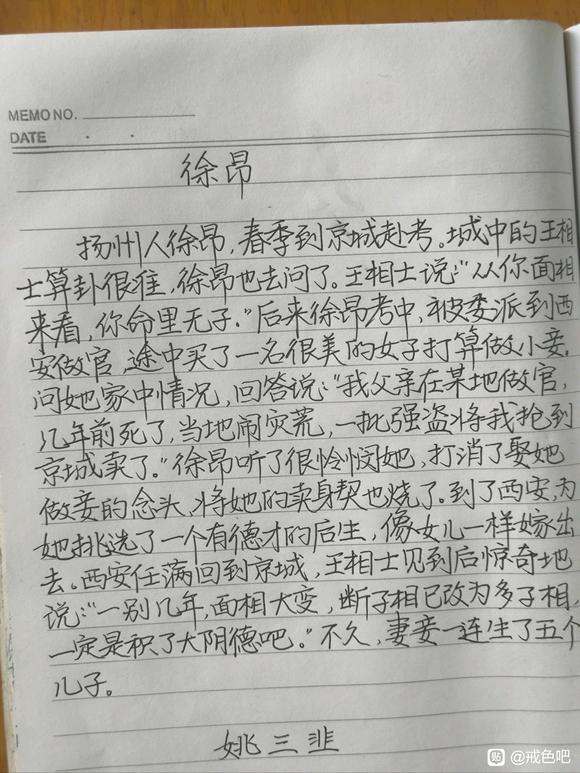 MEMO NO.
DATE
徐昂
扬州人徐昂,春季到京城赴考。城中的王相
士算卦很准,徐昂也去问了。王相士说:“从你面相
来看,你命里无子。”后来徐昂考中,被委派到西
安做官,途中买了一名很美的女子打算做小妾。
问她家中情况,回答说:“我父亲在某地做官,
几年前死了,当地闹灾荒,一批强盗将我抢到
京城卖了。”徐昂听了很怜悯她,打消了娶她
做妾的念头,将她的卖身契也烧了。到了西安,为
她挑选了一个有德才的后生,像女儿一样嫁出
去。西安任满回到京城,王相士见到后惊奇地
说:“一别几年,面相大变,断子相已改为多子相,
一定是积了大阴德吧。”不久,妻妾一连生了五个
儿子。
姚三韭
贴吧 @戒色吧